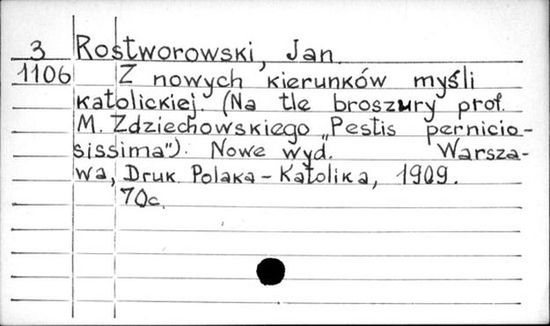 3 Rostworowski, Jan
1106 Z nowych kierunków myśli
katolickiej. (Na tle broszury prof.
M. Zdziechowskiego „Pestis pernicio-
sissima"). Nowe wyd. Warsza-
wa, Druk. Polaka-Katolika, 1909.
70c.